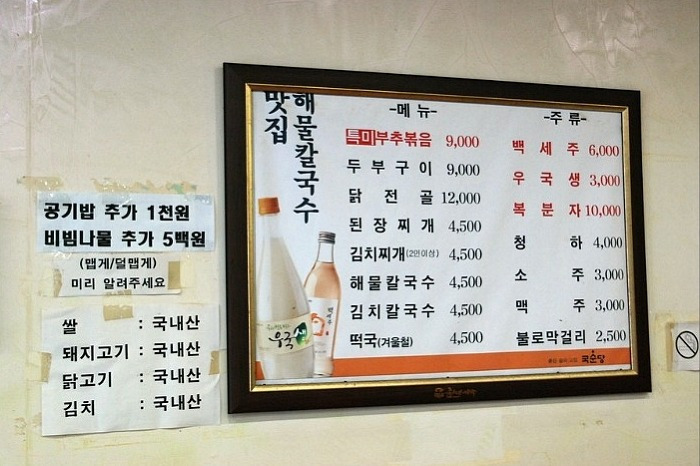 공기밥 추가 1천원
비빔나물 추가 5백원
(맵게/덜맵게)
미리 알려주세요
쌀 : 국내산
돼지고기 : 국내산
닭고기 : 국내산
김치 : 국내산
해물칼국수
맛집
-메뉴-
특미부추볶음 9,000
두부구이 9,000
닭전골 12,000
된장찌개 4,500
김치찌개(2인이상) 4,500
해물칼국수 4,500
김치칼국수 4,500
떡국(겨울철) 4,500
-주류-
백세주 6,000
우국생 3,000
복분자 10,000
청하 4,000
소주 3,000
맥주 3,000
불로막걸리 2,500
우국생
백세주
국순당